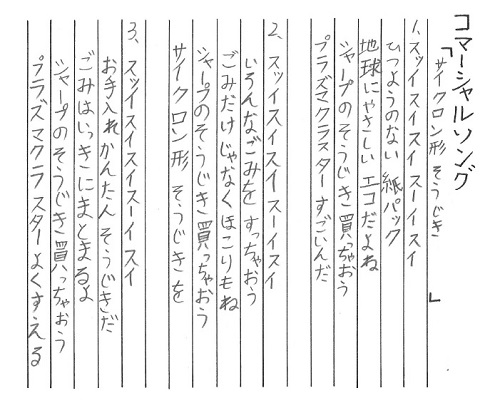 コマーシャルソング
「サイクロン形そうじき」
1、スッイスイスイスーイスイ
ひつようのない紙パック
地球にやさしいエコだよね
シャープのそうじき買っちゃおう
プラズマクラスターすごいんだ
2、スッイスイスイスーイスイ
いろんなごみをすっちゃおう
ごみだけじゃなくほこりもね
シャープのそうじき買っちゃおう
サイクロン形そうじきを
3、スッイスイスイスーイスイ
お手入れかんたんそうじきだ
ごみはいっきにまとまるよ
シャープのそうじき買っちゃおう
プラズマクラスターよくすえる